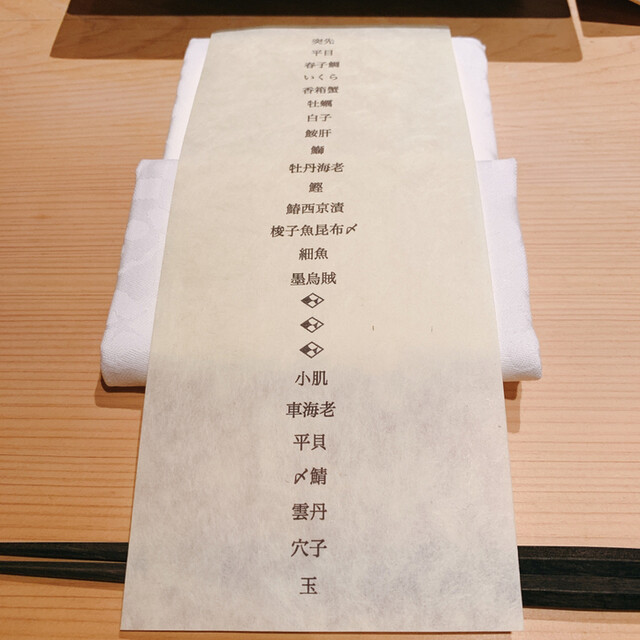 突先
平目
春子鯛
いくら
香箱蟹
牡蠣
白子
鮟肝
鰤
牡丹海老
鰹
鰆西京漬
梭子魚昆布〆
細魚
墨烏賊
小肌
車海老
平貝
〆鯖
雲丹
穴子
玉